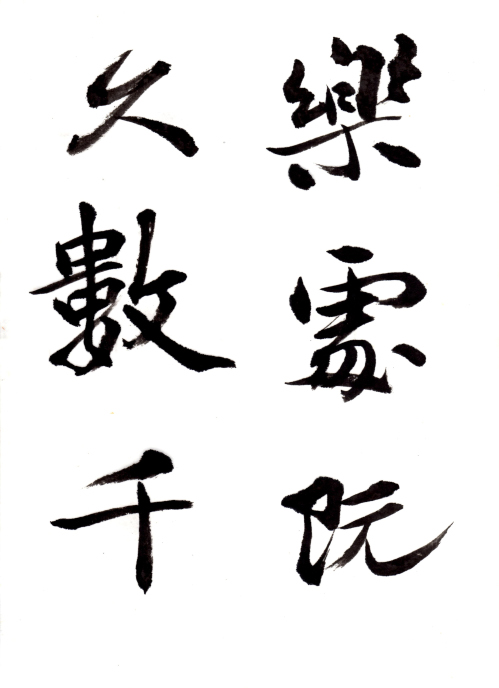 樂處既
久數千